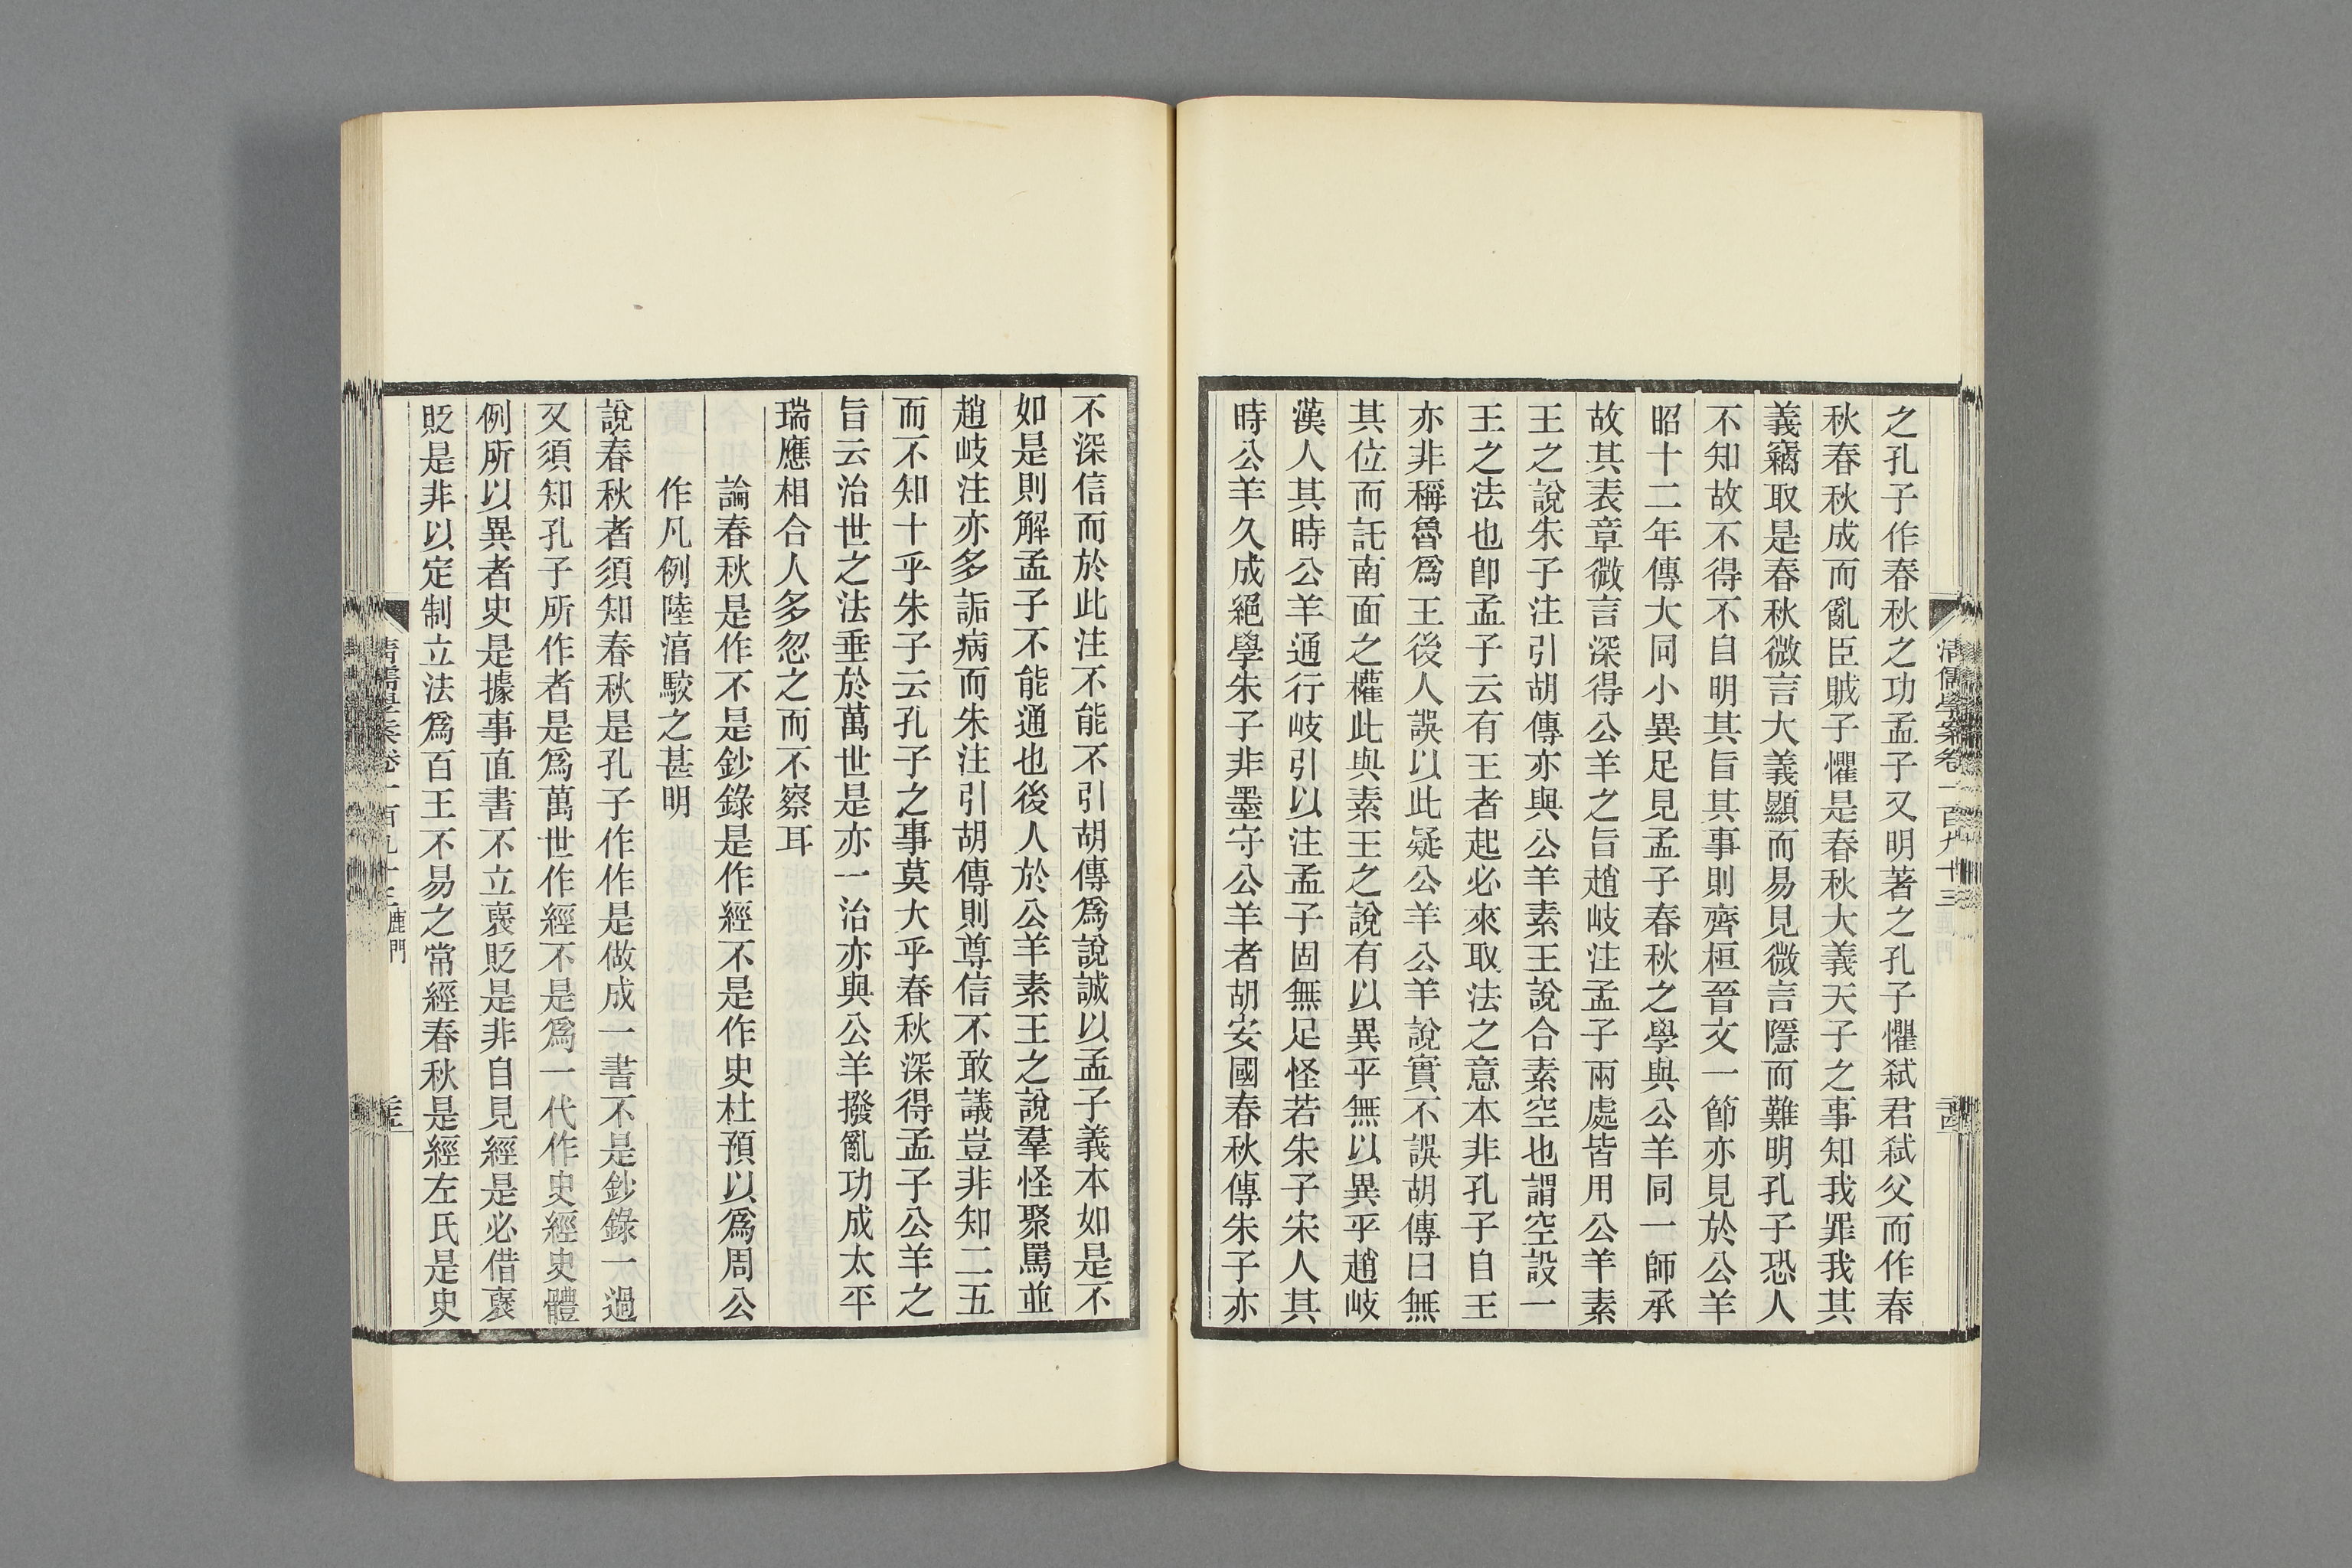 清儒學案卷一百九十三
之孔子作春秋之功孟子又明著之孔子懼弑君弑父而作春
秋春秋成而亂臣賊子懼是春秋大義天子之事知我罪我其
義竊取是春秋微言大義顯而易見微言隱而難明孔子恐人
不知故不得不自明其旨其事則齊桓晉文一節亦見於公羊
昭十二年傳大同小異足見孟子春秋之學與公羊同一師承
故其表章微言深得公羊之旨趙岐注孟子兩處皆用公羊素
王之說朱子注引胡傳亦與公羊素王說合素空也謂空設一
王之法也卽孟子云有王者起必來取法之意本非孔子自王
亦非稱魯爲王後人誤以此疑公羊公羊說實不誤胡傳曰無
其位而託南面之權此與素王之說有以異乎無以異乎趙岐
漢人其時公羊通行岐引以注孟子固無足怪若朱子宋人其
時公羊久成絕學朱子非墨守公羊者胡安國春秋傳朱子亦
不深信而於此注不能不引胡傳爲說誠以孟子義本如是不
如是則解孟子不能通也後人於公羊素王之說羣怪聚罵並
趙岐注亦多詬病而朱注引胡傳則尊信不敢議豈非知二五
而不知十乎朱子云孔子之事莫大乎春秋深得孟子公羊之
旨云治世之法垂於萬世是亦一治亦與公羊撥亂功成太平
瑞應相合人多忽之而不察耳
論春秋是作不是鈔錄是作經不是作史杜預以爲周公
作凡例陸淳駮之甚明
說春秋者須知春秋是孔子作作是做成一書不是鈔錄一過
又須知孔子所作者是爲萬世作經不是爲一代作史經史體
例所以異者史是據事直書不立襃貶是非自見經是必借襃
貶是非以定制立法爲百王不易之常經春秋是經左氏是史
清儒學案卷一百九十三 鹿門